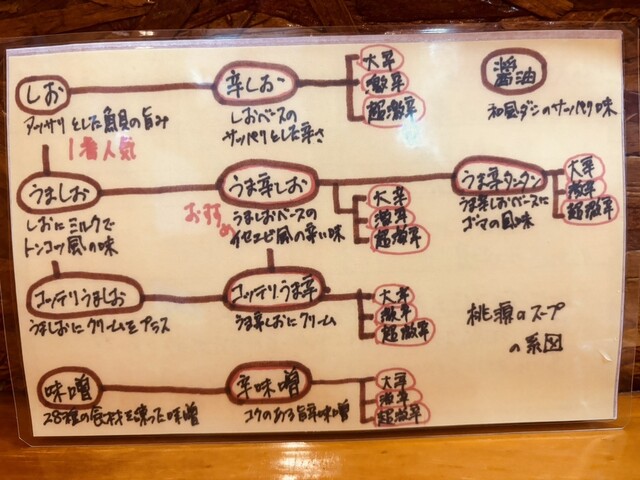 しお
アッサリとした魚貝の旨み
辛しお
しおベースの
サッパリとした辛さ
大辛
激辛
超激辛
醤油
和風ダシのサッパリ味
1番人気
うましお
しおにミルクで
トンコツ風の味
おすすめ
うま辛しお
うましおベースの
イセエビ風の辛い味
大辛
激辛
超激辛
うま辛タンタン
うま辛しおベースに
ゴマの風味
大辛
激辛
超激辛
コッテリうましお
うましおにクリームをプラス
コッテリうま辛
うま辛しおにクリーム
大辛
激辛
超激辛
桃源のスープ
の系図
味噌
28種の食材を練った味噌
辛味噌
コクのある旨辛味噌
大辛
激辛
超激辛